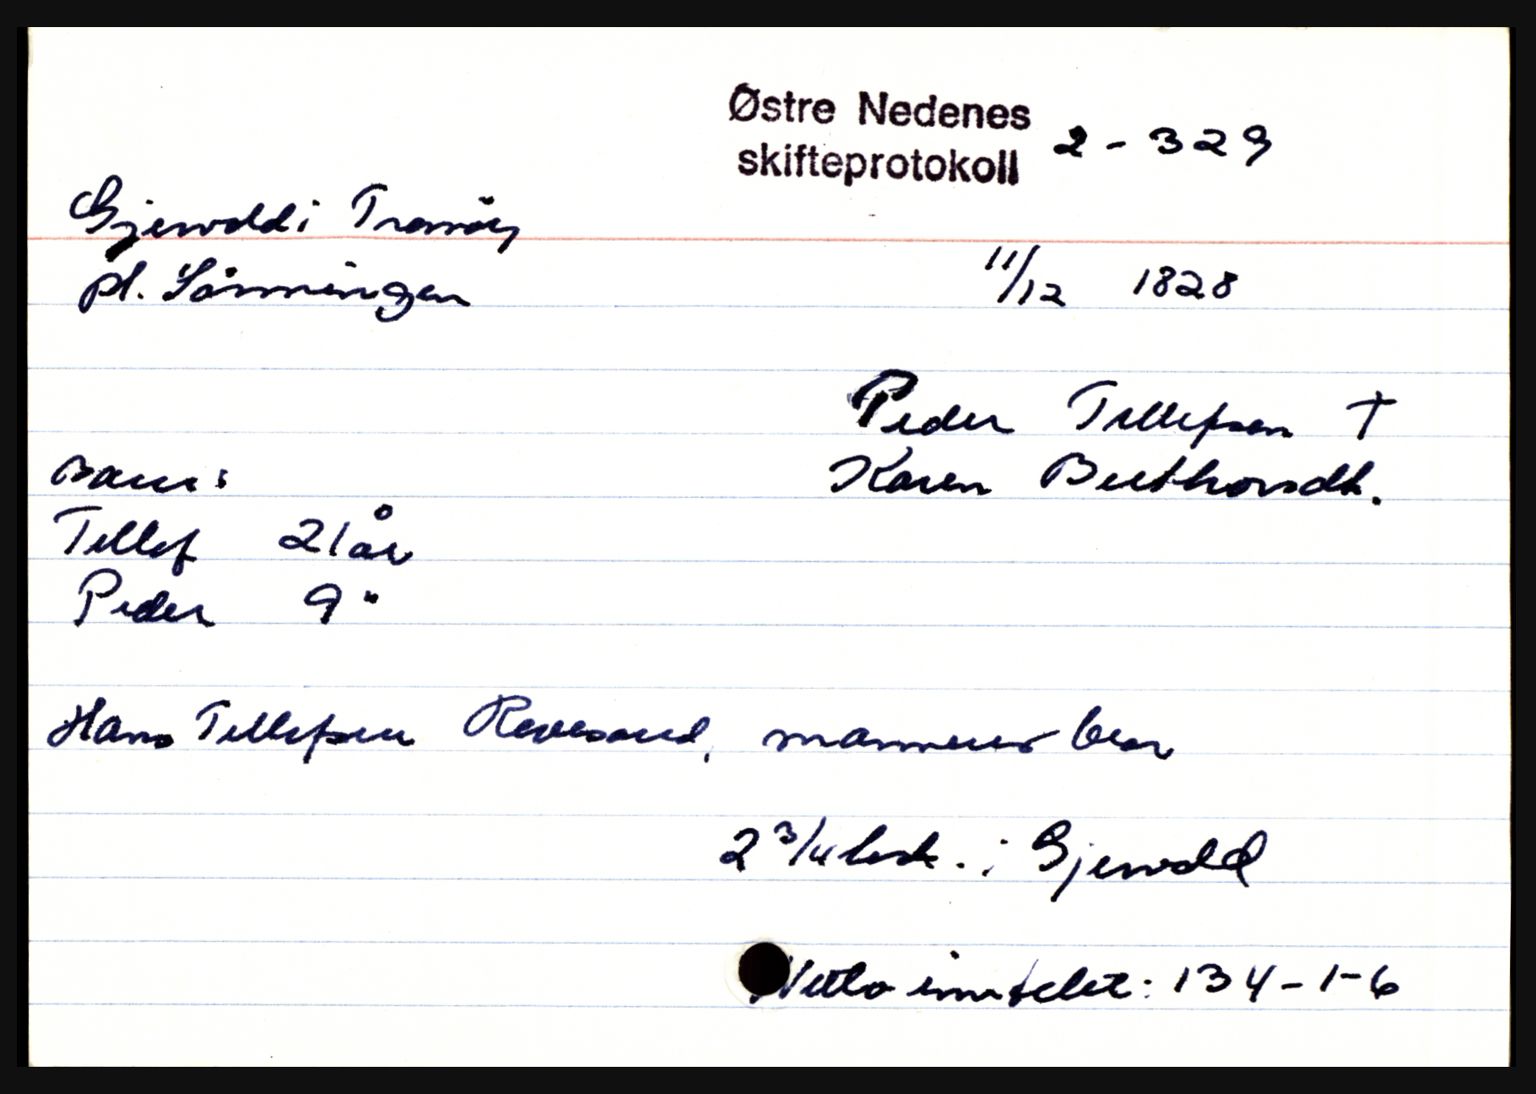 Østre Nedenes
skifteprotokoll 2-329
Gjervold i Tromøy
pl. Sånningen
11/12 1828
Peder Tellefsen †
Karen Berthorsdt.
Barn:
Tellef 21 år
Peder 9 "
Hans Tellefsen Revesand, mannens bror
2 3/4 i Gjervold
Netto innteket: 134-1-6